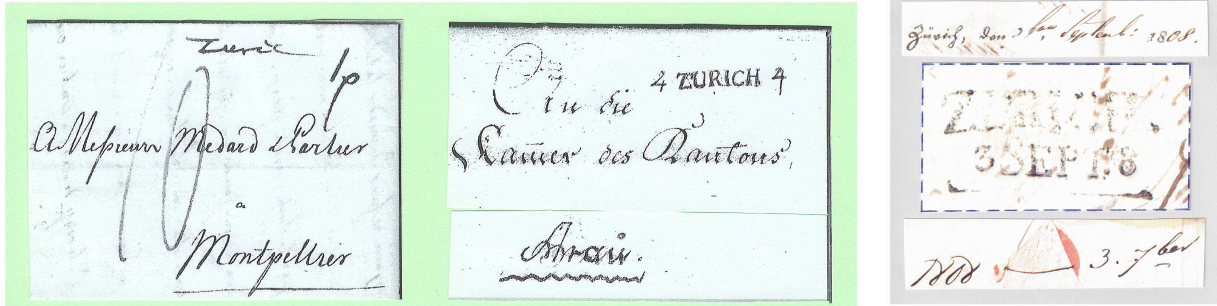 Zuric
1p
10
A Messieurs Medard & Parlier
a
Montpellier
4 ZURICH 4
An die
Kam̄er des Kantons,
Arau.
Zürich, den 3ten Septemb: 1808.
ZURICH.
3 SEPT. 8
1808 3. 7ber